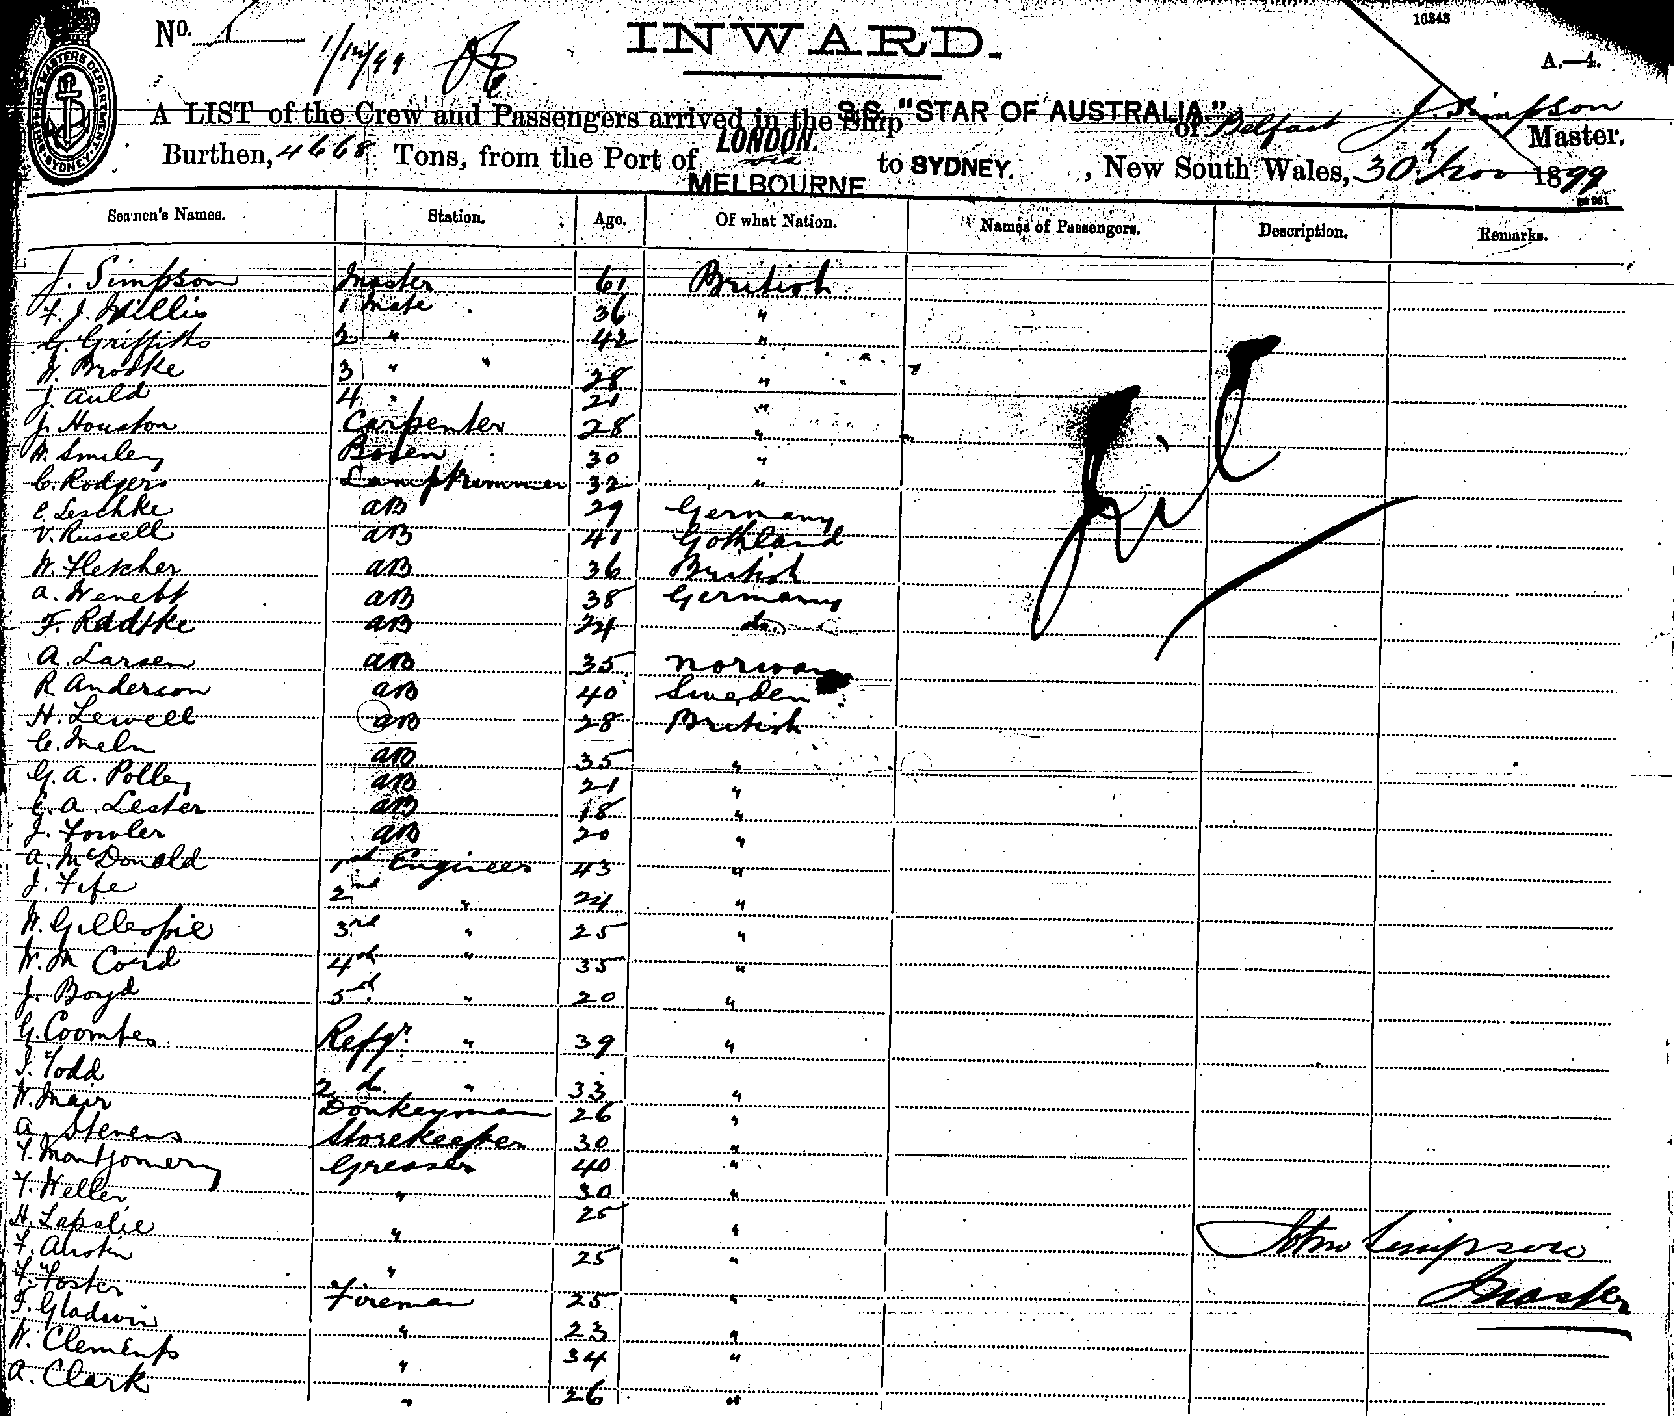 No. 1
1/12/99
INWARD.
10343
A.—4.
A LIST of the Crew and Passengers arrived in the Ship S.S. "STAR OF AUSTRALIA" of Belfast J. Simpson Master.
Burthen, 4668 Tons, from the Port of LONDON. via MELBOURNE to SYDNEY. , New South Wales, 30th Nov 1899
Seamen's Names. Station. Age. Of what Nation. Names of Passengers. Description. Remarks.
J. Simpson Master 61 British
F. J. Willis 1 Mate 36 "
G. Griffiths 2 " 42 "
W. Brooke 3 " " 28 "
J. Auld 4 " 21 "
J. Houston Carpenter 28 "
W. Smiley Bosen 30 "
C. Rodgers Lamptrimmer 32 "
C. Leschke AB 29 Germany
V. Russell AB 41 Gothland
W. Fletcher AB 36 British
A. AB 38 Germany
F. Radtke AB 24 do.
A. Larsen AB 35 Norway
R Anderson AB 40 Sweden
H. Lewell AB 28 British
C. AB 35 "
G. A. Polley AB 21 "
C. A. Lester AB 18 "
J. Fowler AB 20 "
A. McDonald 1st Engineer 43 "
J. Fife 2nd " 24 "
W. Gillespie 3rd " 25 "
W. McCord 4th " 35 "
J. Boyd 5th " 20 "
G. Coombes Refgr. " 39 "
J. Todd 2d " 33 "
W. Mair Donkeyman 26 "
A. Stevens Storekeeper 30 "
T. Montgomery Greaser 40 "
F. Weller " 30 "
H. Lapslie " 25 "
F. Austin " 25 "
F. Foster Fireman 25 "
F. Gladwin " 23 "
W. Clements " 34 "
A. Clark " 26 "
Nil
John Simpson
Master